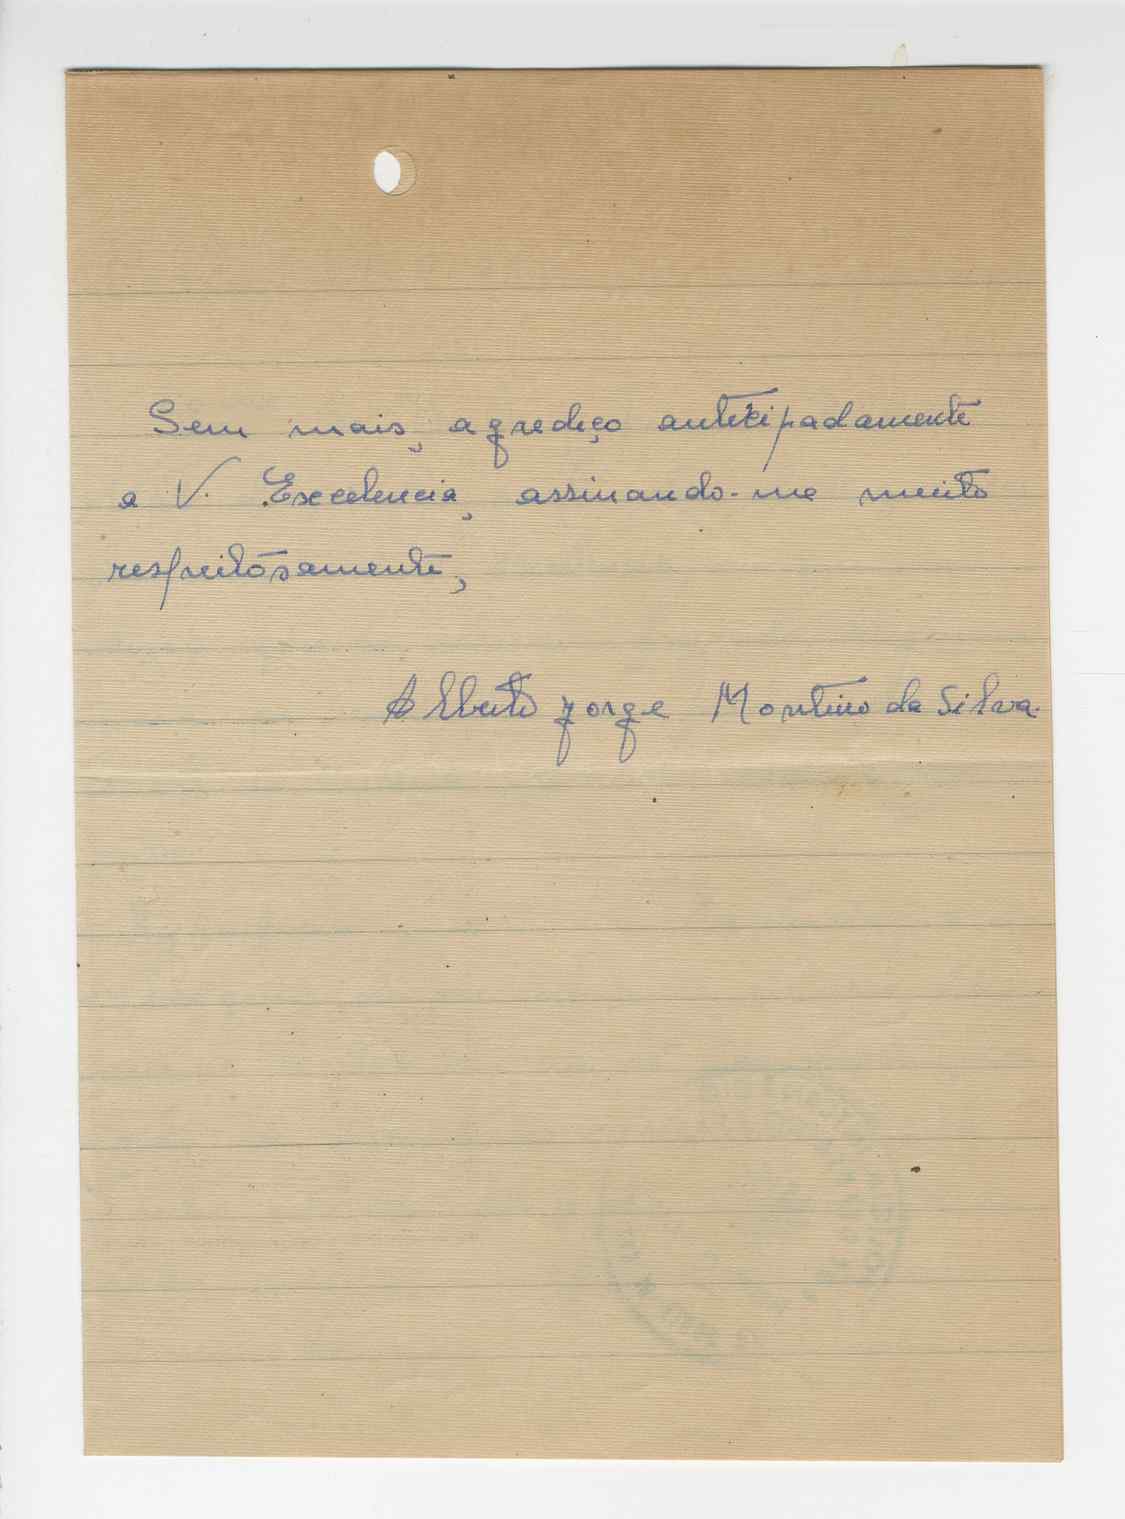 Sem mais, agredeço antecipadamente
a V. Excelencia, assinando-me muito
respeitósamente,
Alberto Jorge Monteiro da Silva.